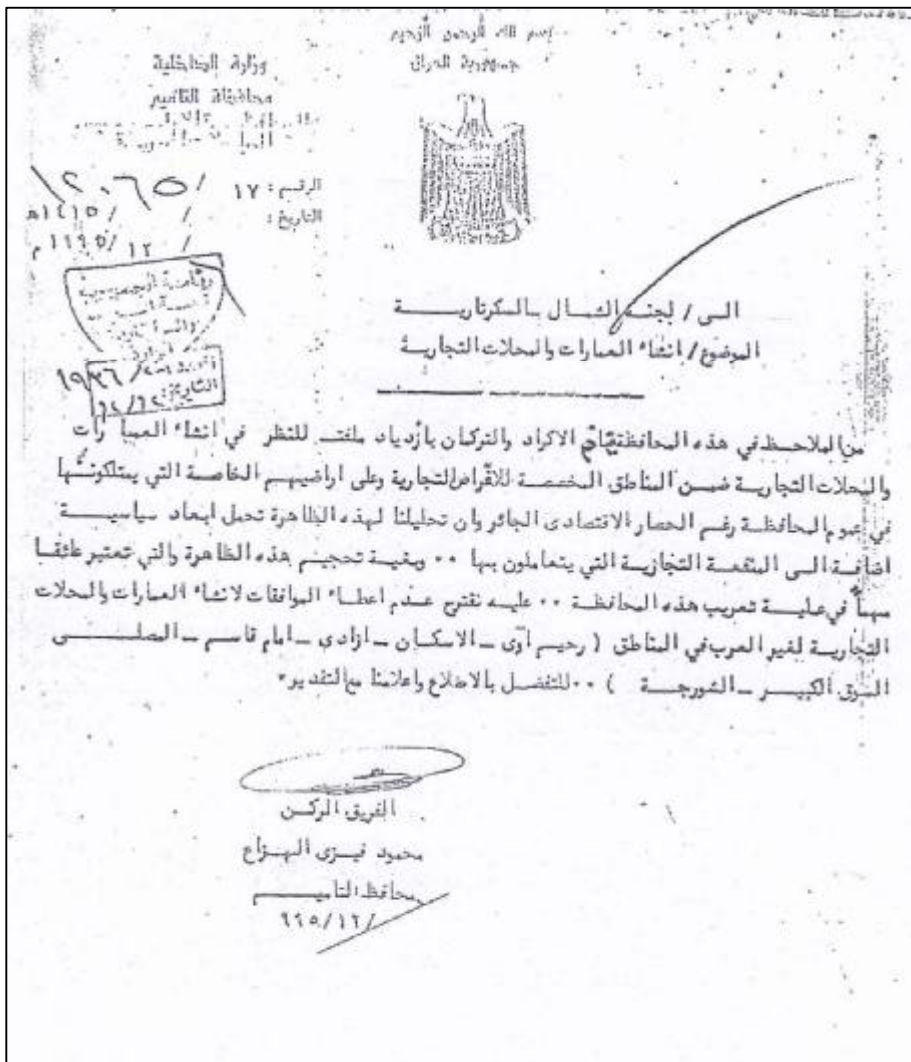 بسم الله الرحمن الرحيم
جمهورية العراق
وزارة الداخلية
محافظة التاميم
الرقم : ١٧ /
التاريخ : / / ١٤١٥هـ
/ ١٢ / ١٩٩٥م
الى / لجنة الشمال ـ السكرتارية
الموضوع / انشاء العمارات والمحلات التجارية
من الملاحظ في هذه المحافظة قيام الاكراد والتركمان بازدياد ملفت للنظر في انشاء العمارات
والمحلات التجارية ضمن المناطق المخصصة للاغراض التجارية وعلى اراضيهم الخاصة التي يمتلكونها
في عموم المحافظة رغم الحصار الاقتصادى الجائر وان تحليلنا لهذه الظاهرة تحمل ابعاد سياسية
اضافة الى المنفعة التجارية التي يتعاملون بها ٠٠ وبغية تحجيم هذه الظاهرة والتي تعتبر عائقا
مهماً في عملية تعريب هذه المحافظة ٠٠ عليه نقترح عدم اعطاء الموافقات لانشاء العمارات والمحلات
التجارية لغير العرب في المناطق ( رحيم آوى ـ الاسكان ـ ازادى ـ امام قاسم ـ المصلى
السوق الكبير ـ الشورجة ) ٠٠ للتفضل بالاطلاع واعلامنا مع التقدير٠
الفريق الركن
محمود فيزى الهزاع
محافظ التاميم
/ ١٢ / ٩٩٥